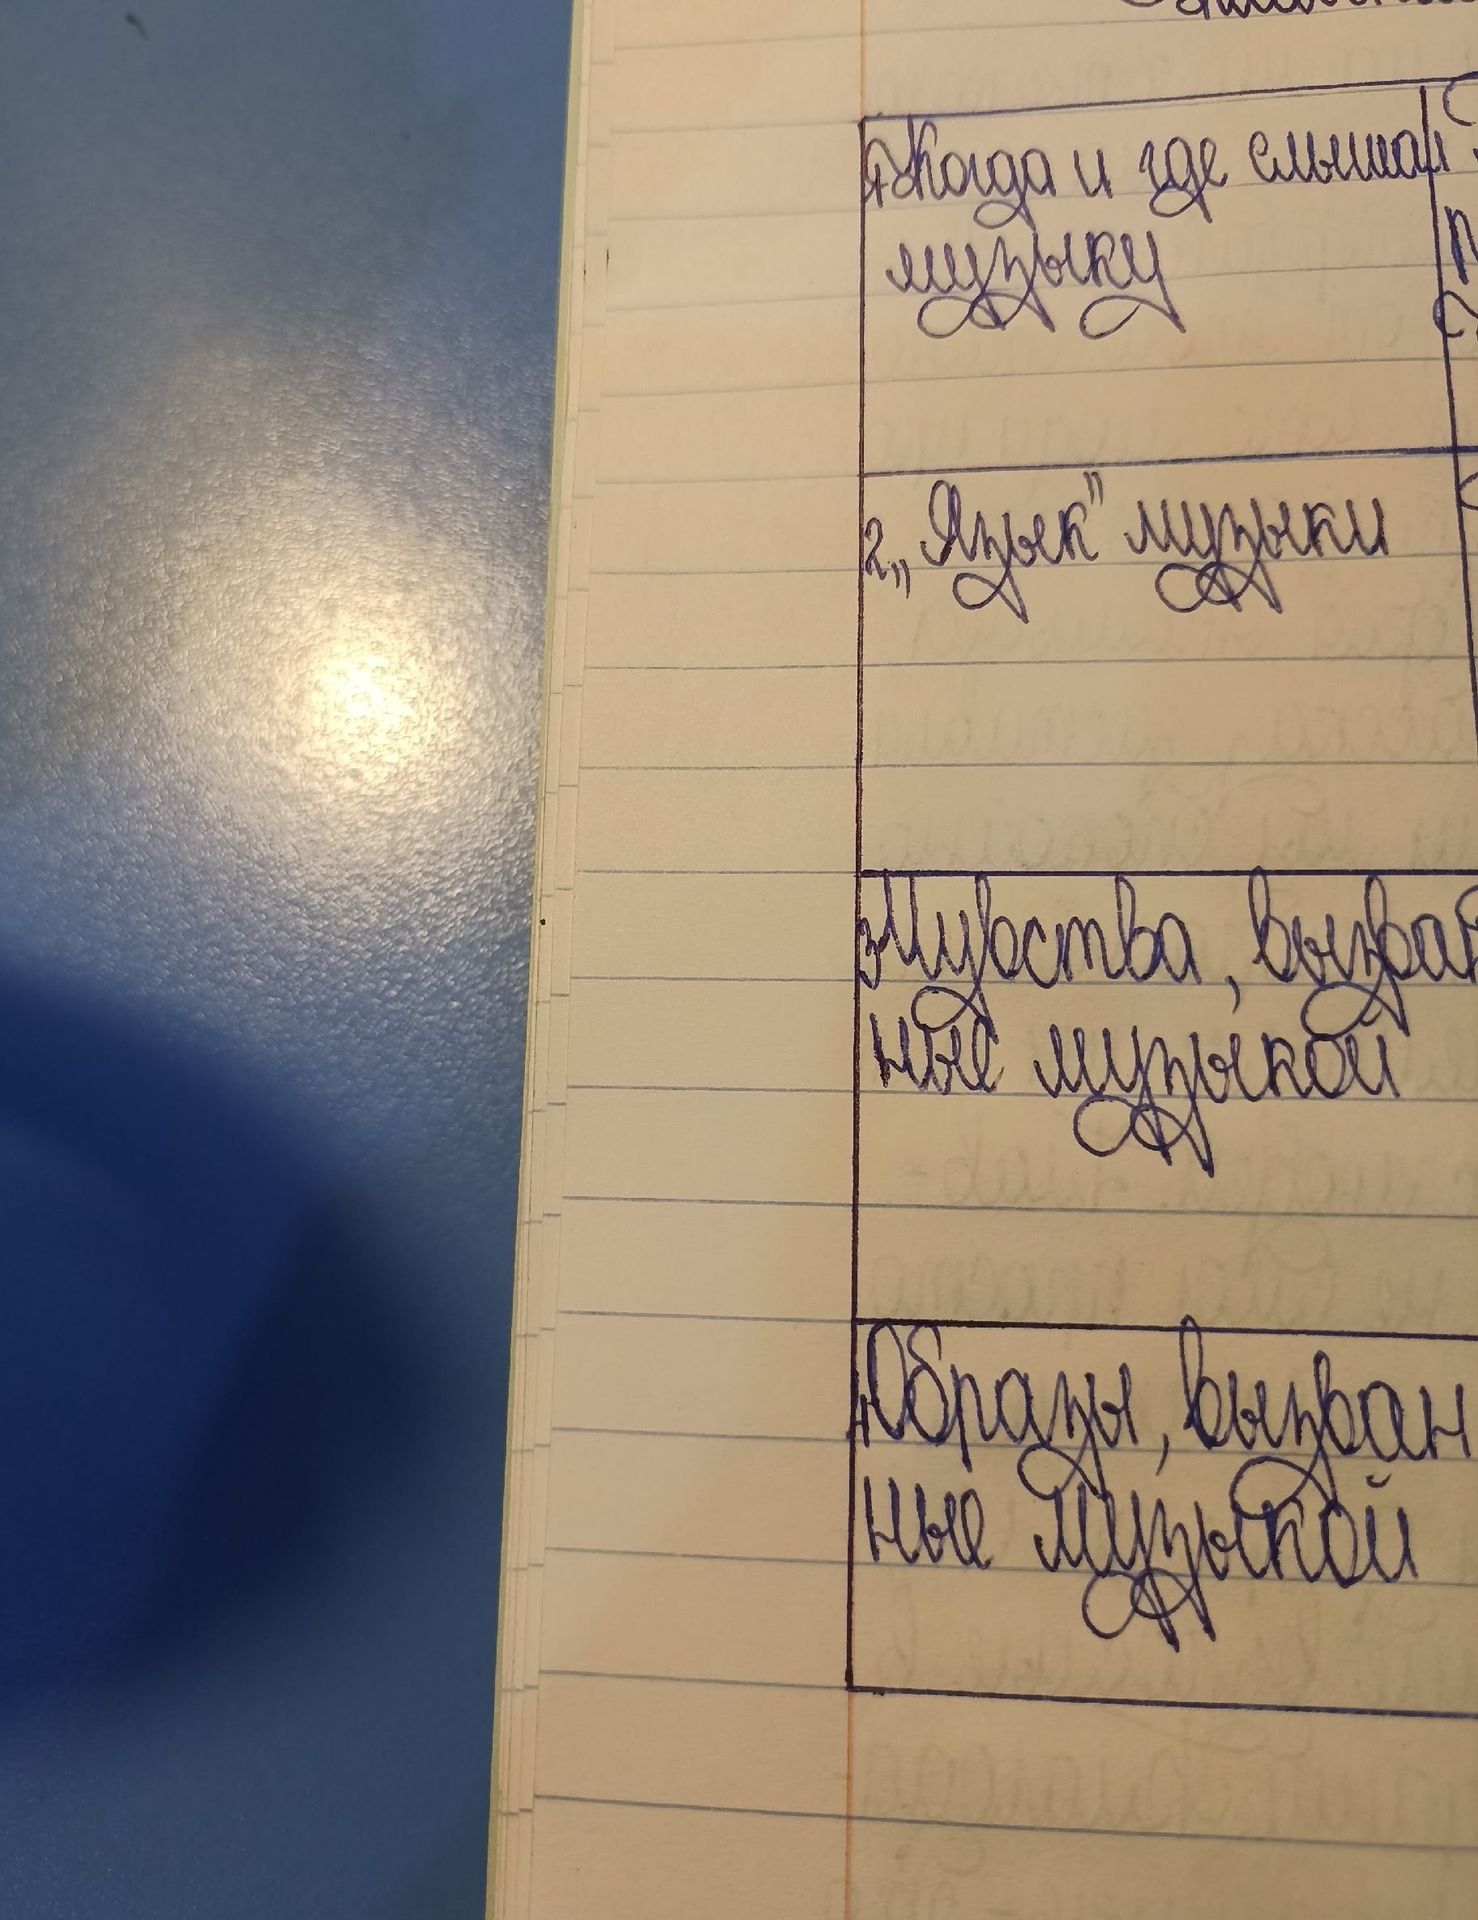 1. Когда и где слышал
музыку
2. „Язык" музыки
3. Чувства, вызван
ные музыкой
4. Образы, вызван
ные музыкой